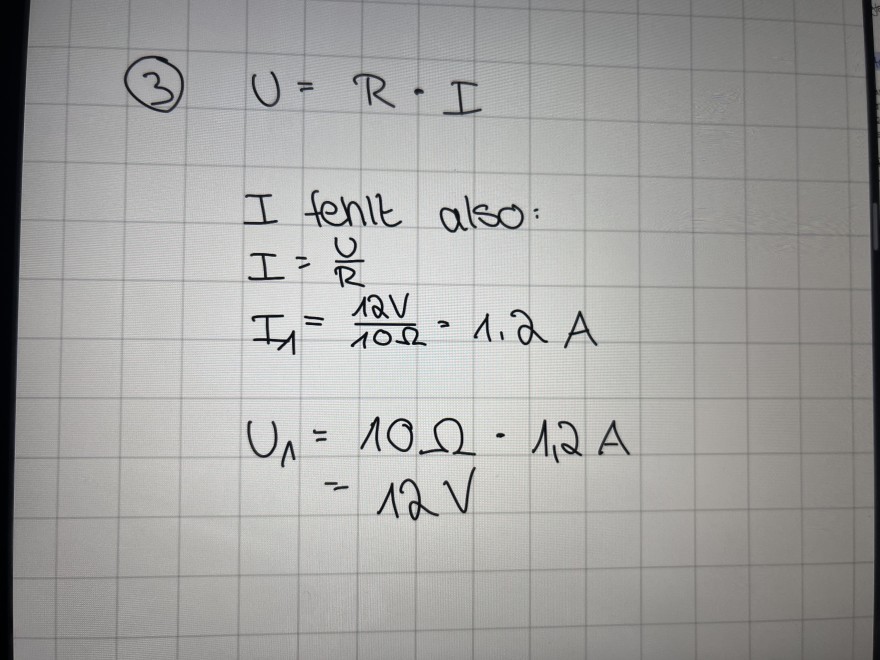 ③ U = R · I
I fehlt also:
I = U/R
I₁ = 12V/10Ω = 1.2 A
U₁ = 10Ω · 1,2 A
= 12 V